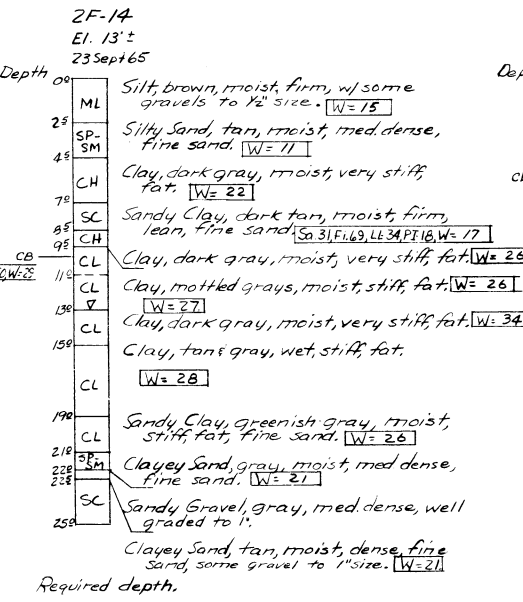 2F-14
El. 13'±
23 Sept 65
Depth
Dep
0⁰
ML
Silt, brown, moist, firm, w/some
gravels to ½" size. W= 15
2⁵
SP-
SM
Silty Sand, tan, moist, med. dense,
fine sand. W= 11
4⁵
CH
Clay, dark gray, moist, very stiff,
fat. W= 22
7⁰
SC
Sandy Clay, dark tan, moist, firm,
lean, fine sand. Sa.31, Fi.69, LL34, PI18, W= 17
8⁵
CH
9⁵
CB
CL
Clay, dark gray, moist, very stiff, fat. W= 26
W=25
11⁰
CL
Clay, mottled grays, moist, stiff, fat. W= 26
W=27
13⁰
CL
Clay, dark gray, moist, very stiff, fat. W= 34
15⁰
Clay, tan & gray, wet, stiff, fat.
CL
W= 28
19⁰
CL
Sandy Clay, greenish gray, moist,
stiff, fat, fine sand. W= 26
21⁰
SP-
SM
Clayey Sand, gray, moist, med dense,
fine sand. W= 21
22⁰
22⁵
SC
Sandy Gravel, gray, med. dense, well
graded to 1".
25⁰
Clayey Sand, tan, moist, dense, fine
sand, some gravel to 1" size. W=21
Required depth.